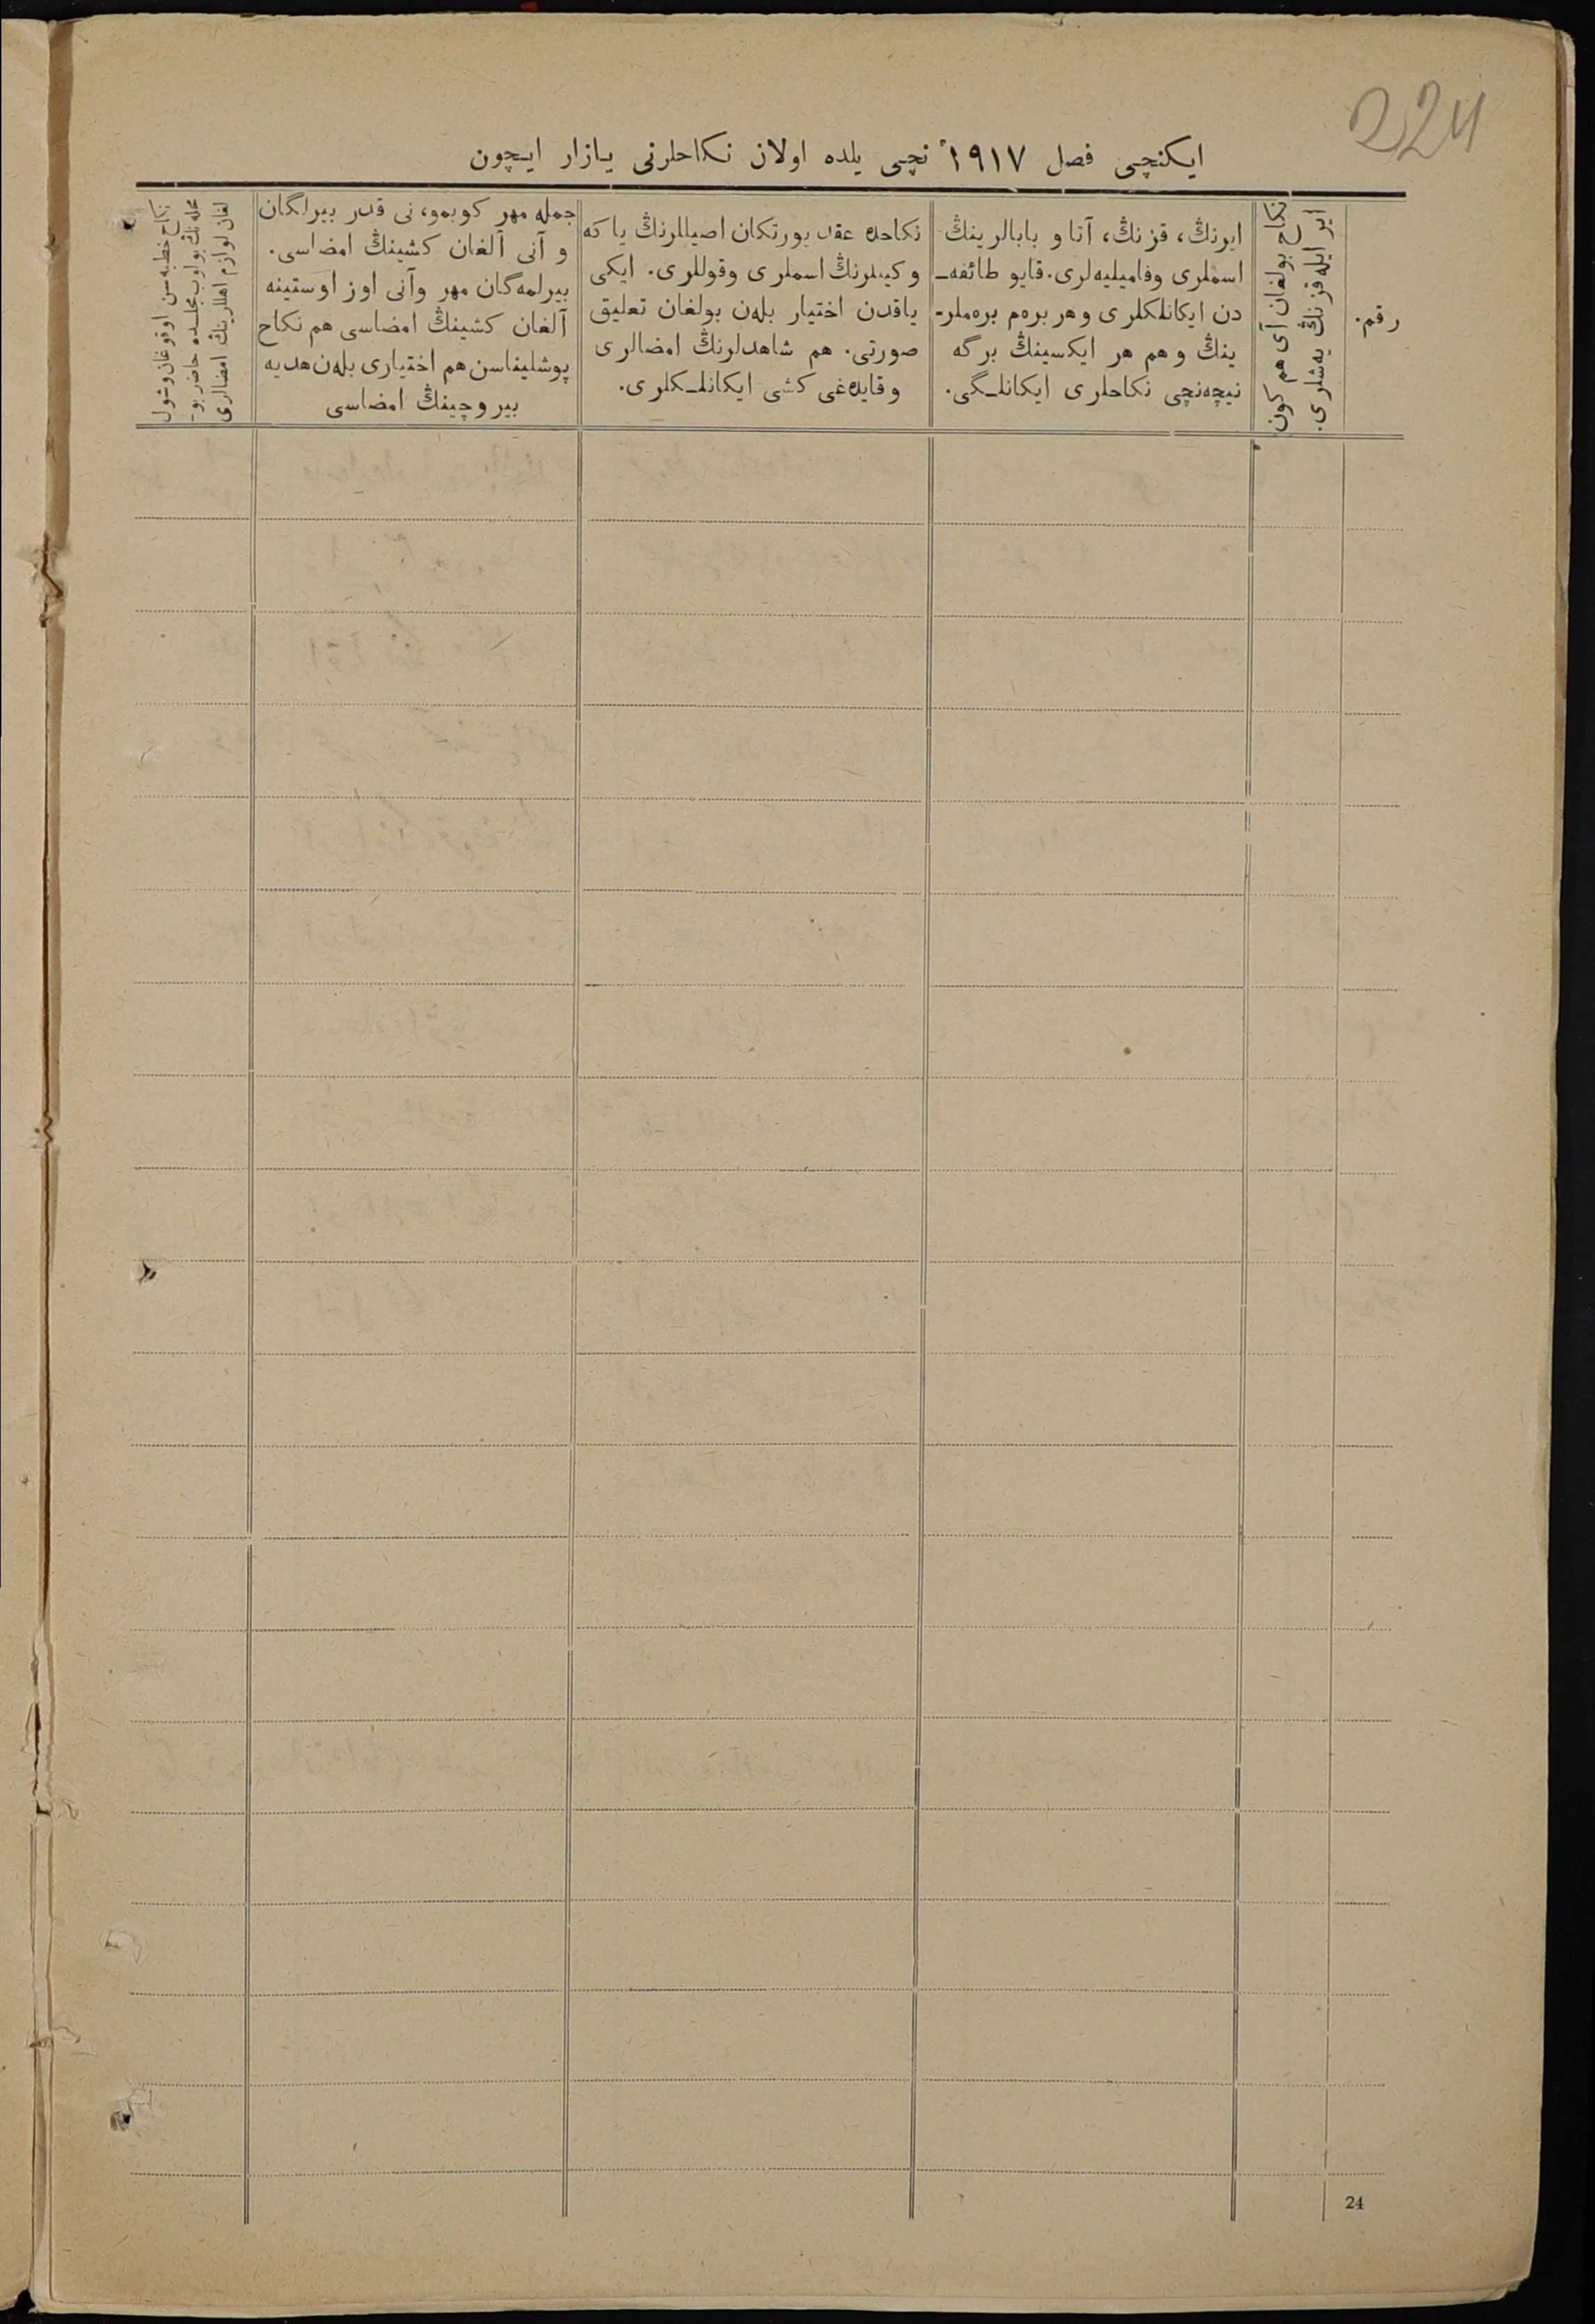 224
ایكنچی فصل ١٩١٧ نچی یلده اولان نكاحلرنی یازار ایچون
رقم.
نكاح بولغان آی هم كون
ایر ایله قزنڭ یه‌شلری.
ایرنڭ، قزنڭ، آتا و بابالرینڭ
اسملری وفامیلیه‌لری. قایو طائفه‌ـ
دن ایكانلكلری وهر بره‌م بره‌ملر-
ینڭ وهم هر ایكسینڭ برگه
نیچه‌نچی نكاحلری ایكانلـگی.
نكاحده عقد یورتكان اصیللرنڭ یا كه
وكیللرنڭ اسملری وقوللری. ایكی
یاقدن اختیار بله‌ن بولغان تعلیق
صورتی. هم شاهدلرنڭ امضالری
وقایده‌غی كشی ایكانلـكلری.
جمله مهر كوبمو، نی قدر بیرلگان
و آنی آلغان كشینڭ امضاسی.
بیرلمه‌گان مهر وآنی اوز اوستینه
آلغان كشینڭ امضاسی هم نكاح
پوشلیناسن هم اختیاری بله‌ن هدیه
بیروچینڭ امضاسی
نكاح خطبه‌سن اوقوغان وشول
محله‌نڭ بولوب مجلسده حاضر بو-
لغان لوازم اهللرینڭ امضالری
24